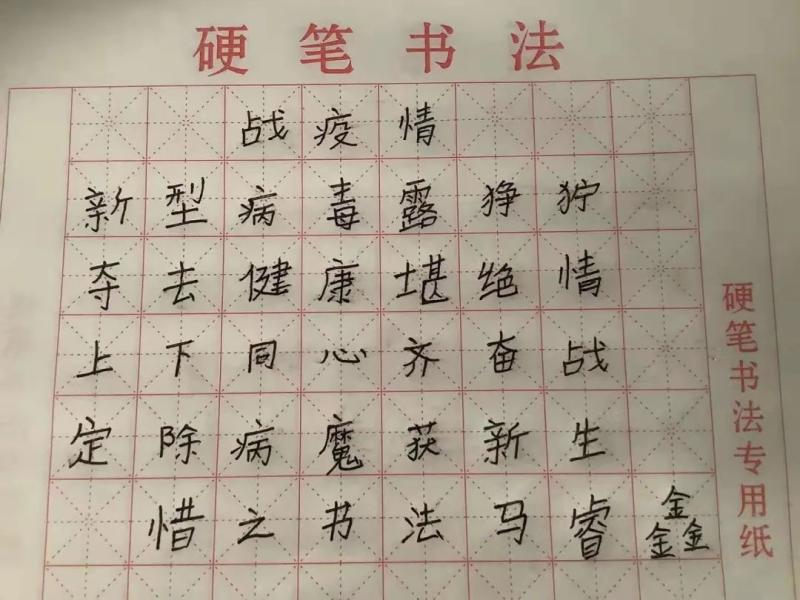 硬笔书法
战疫情
新型病毒露狰狞
夺去健康堪绝情
上下同心齐奋战
定除病魔获新生
惜之书法马睿鑫
硬笔书法专用纸